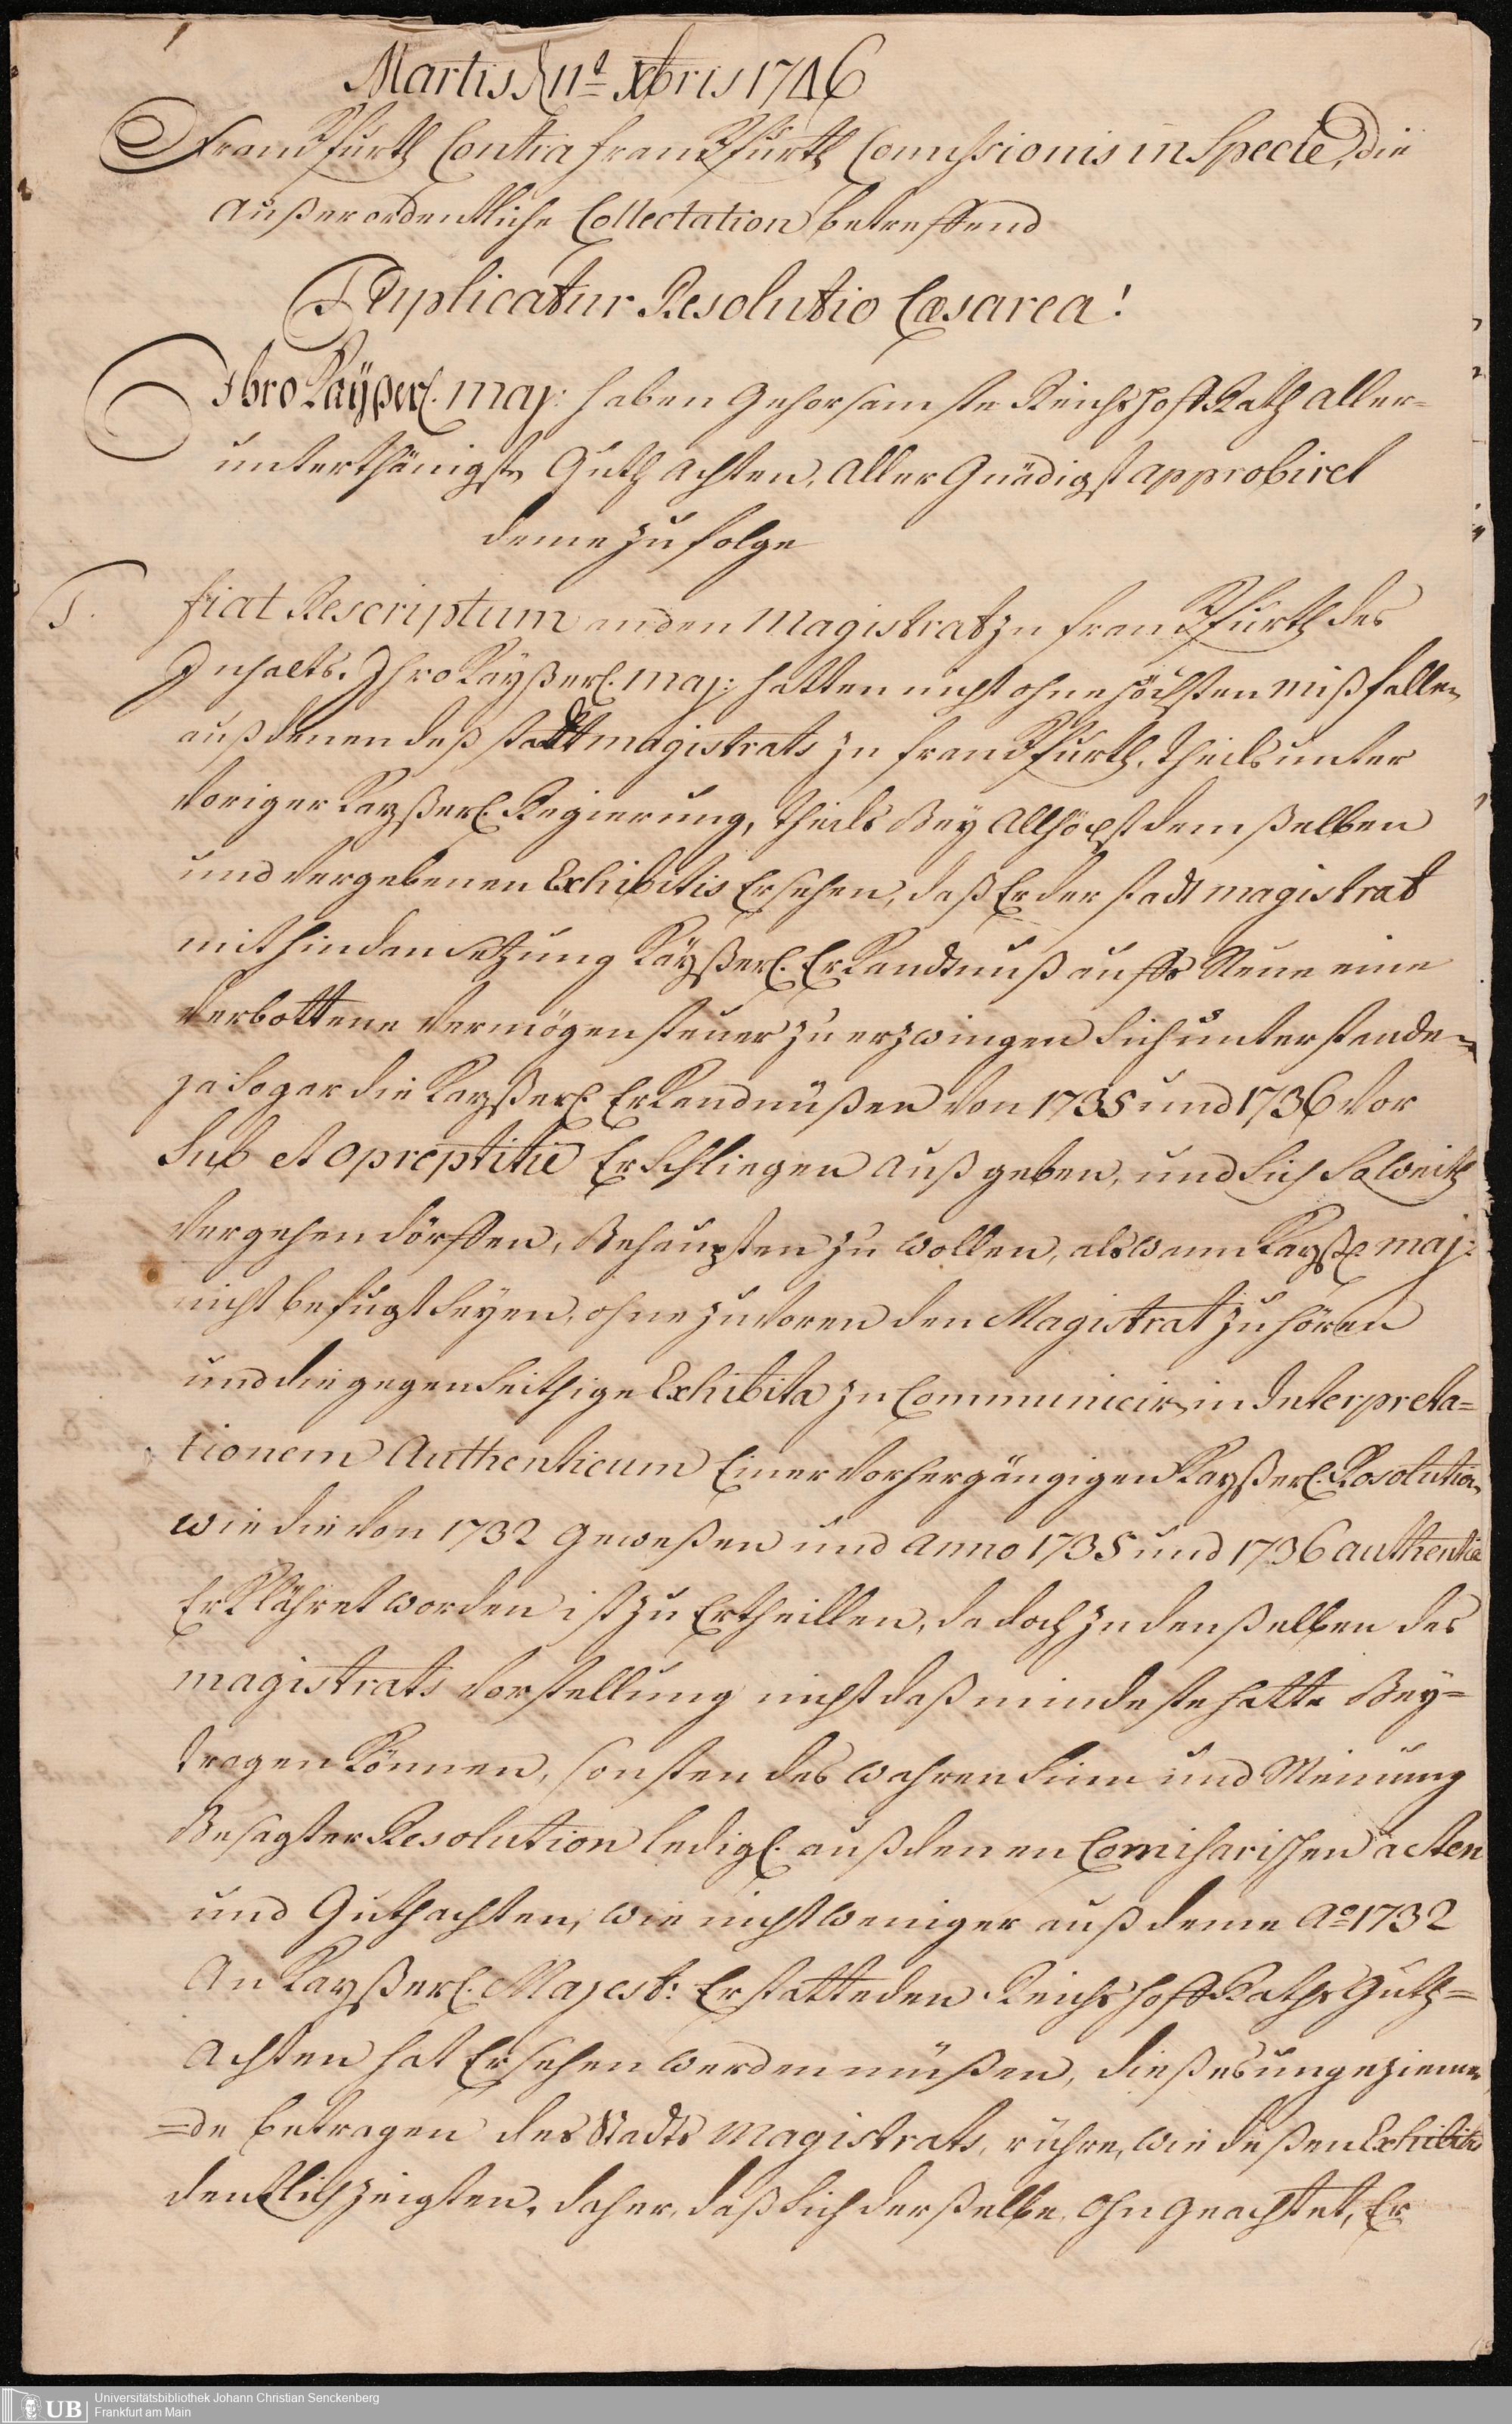 Martis 11d Xbris 1746
Franckfurth Contra Franckfurth Commissionis in Specie, die
Außerordentliche Collectation betreffend
Publicatur Resolutio Cæsarea!
Ihro Kayßerl. Maj: haben Gehorsamste Reichs Hoff Rath aller-
unterthänigst Guth Achten, Aller Gnädigst approbiret
deme zu folge
I. fiat Rescriptum an den Magistrat zu Franckfurth des
Inhalts. Ihro Kayßerl. Maj: hatten nicht ohne höchsten mißfallen
auß denen deß stadt magistrats zu Franckfurth, theils unter
voriger Kayßerl. Regierung, theils Bey Allhöchst demßelben
und vergebenen Exhibitis Ersehen, daß Er der stadt magistrat
mit hindansetzung Kayßerl. Erkandtnuß auffs Neue eine
verbottene Vermögen steuer zu erzwingen sich unterstanden
ja sogar die Kayßerl. Erkandnüßen von 1735 und 1736 vor
Sub et Opreptitie Erschliegen auß geben, und sich so weith
vergehen dörffen, Behaupten zu wollen, als wann Kayßl. Maj:
nicht befugt seyen, ohne zuvoren den Magistrat zu hören
und die gegenseithige Exhibita zu Communicirn, in Interpreta=
tionem Authenticum Einer vorhergängigen Kayßerl. Rosolution,
wie die von 1732 geweßen und Anno 1735 und 1736 authentice
Erklähret worden ist zu Ertheillen, da doch zu denßelben des
magistrats vorstellung nicht daß mindeste hatte Bey=
tragen können, sonsten des wahren Sinn und Meinung
Besagter Resolution ledigl. auß denen Comiharischen acten
und Guthachten, wie nicht weniger auß deme Ao 1732
An Kayßerl. Majest: Erstatteden Reichs hoff Raths Guth=
Achten hat Ersehen werden müßen, dießes ungeziemen
=de betragen des Stadts Magistrats, rühre, wie deßen Exhibita
deutlich zeigten, daher, daß sich derßelbe, ohngeachtet, Er
Universitätsbibliothek Johann Christian Senckenberg
UB Frankfurt am Main